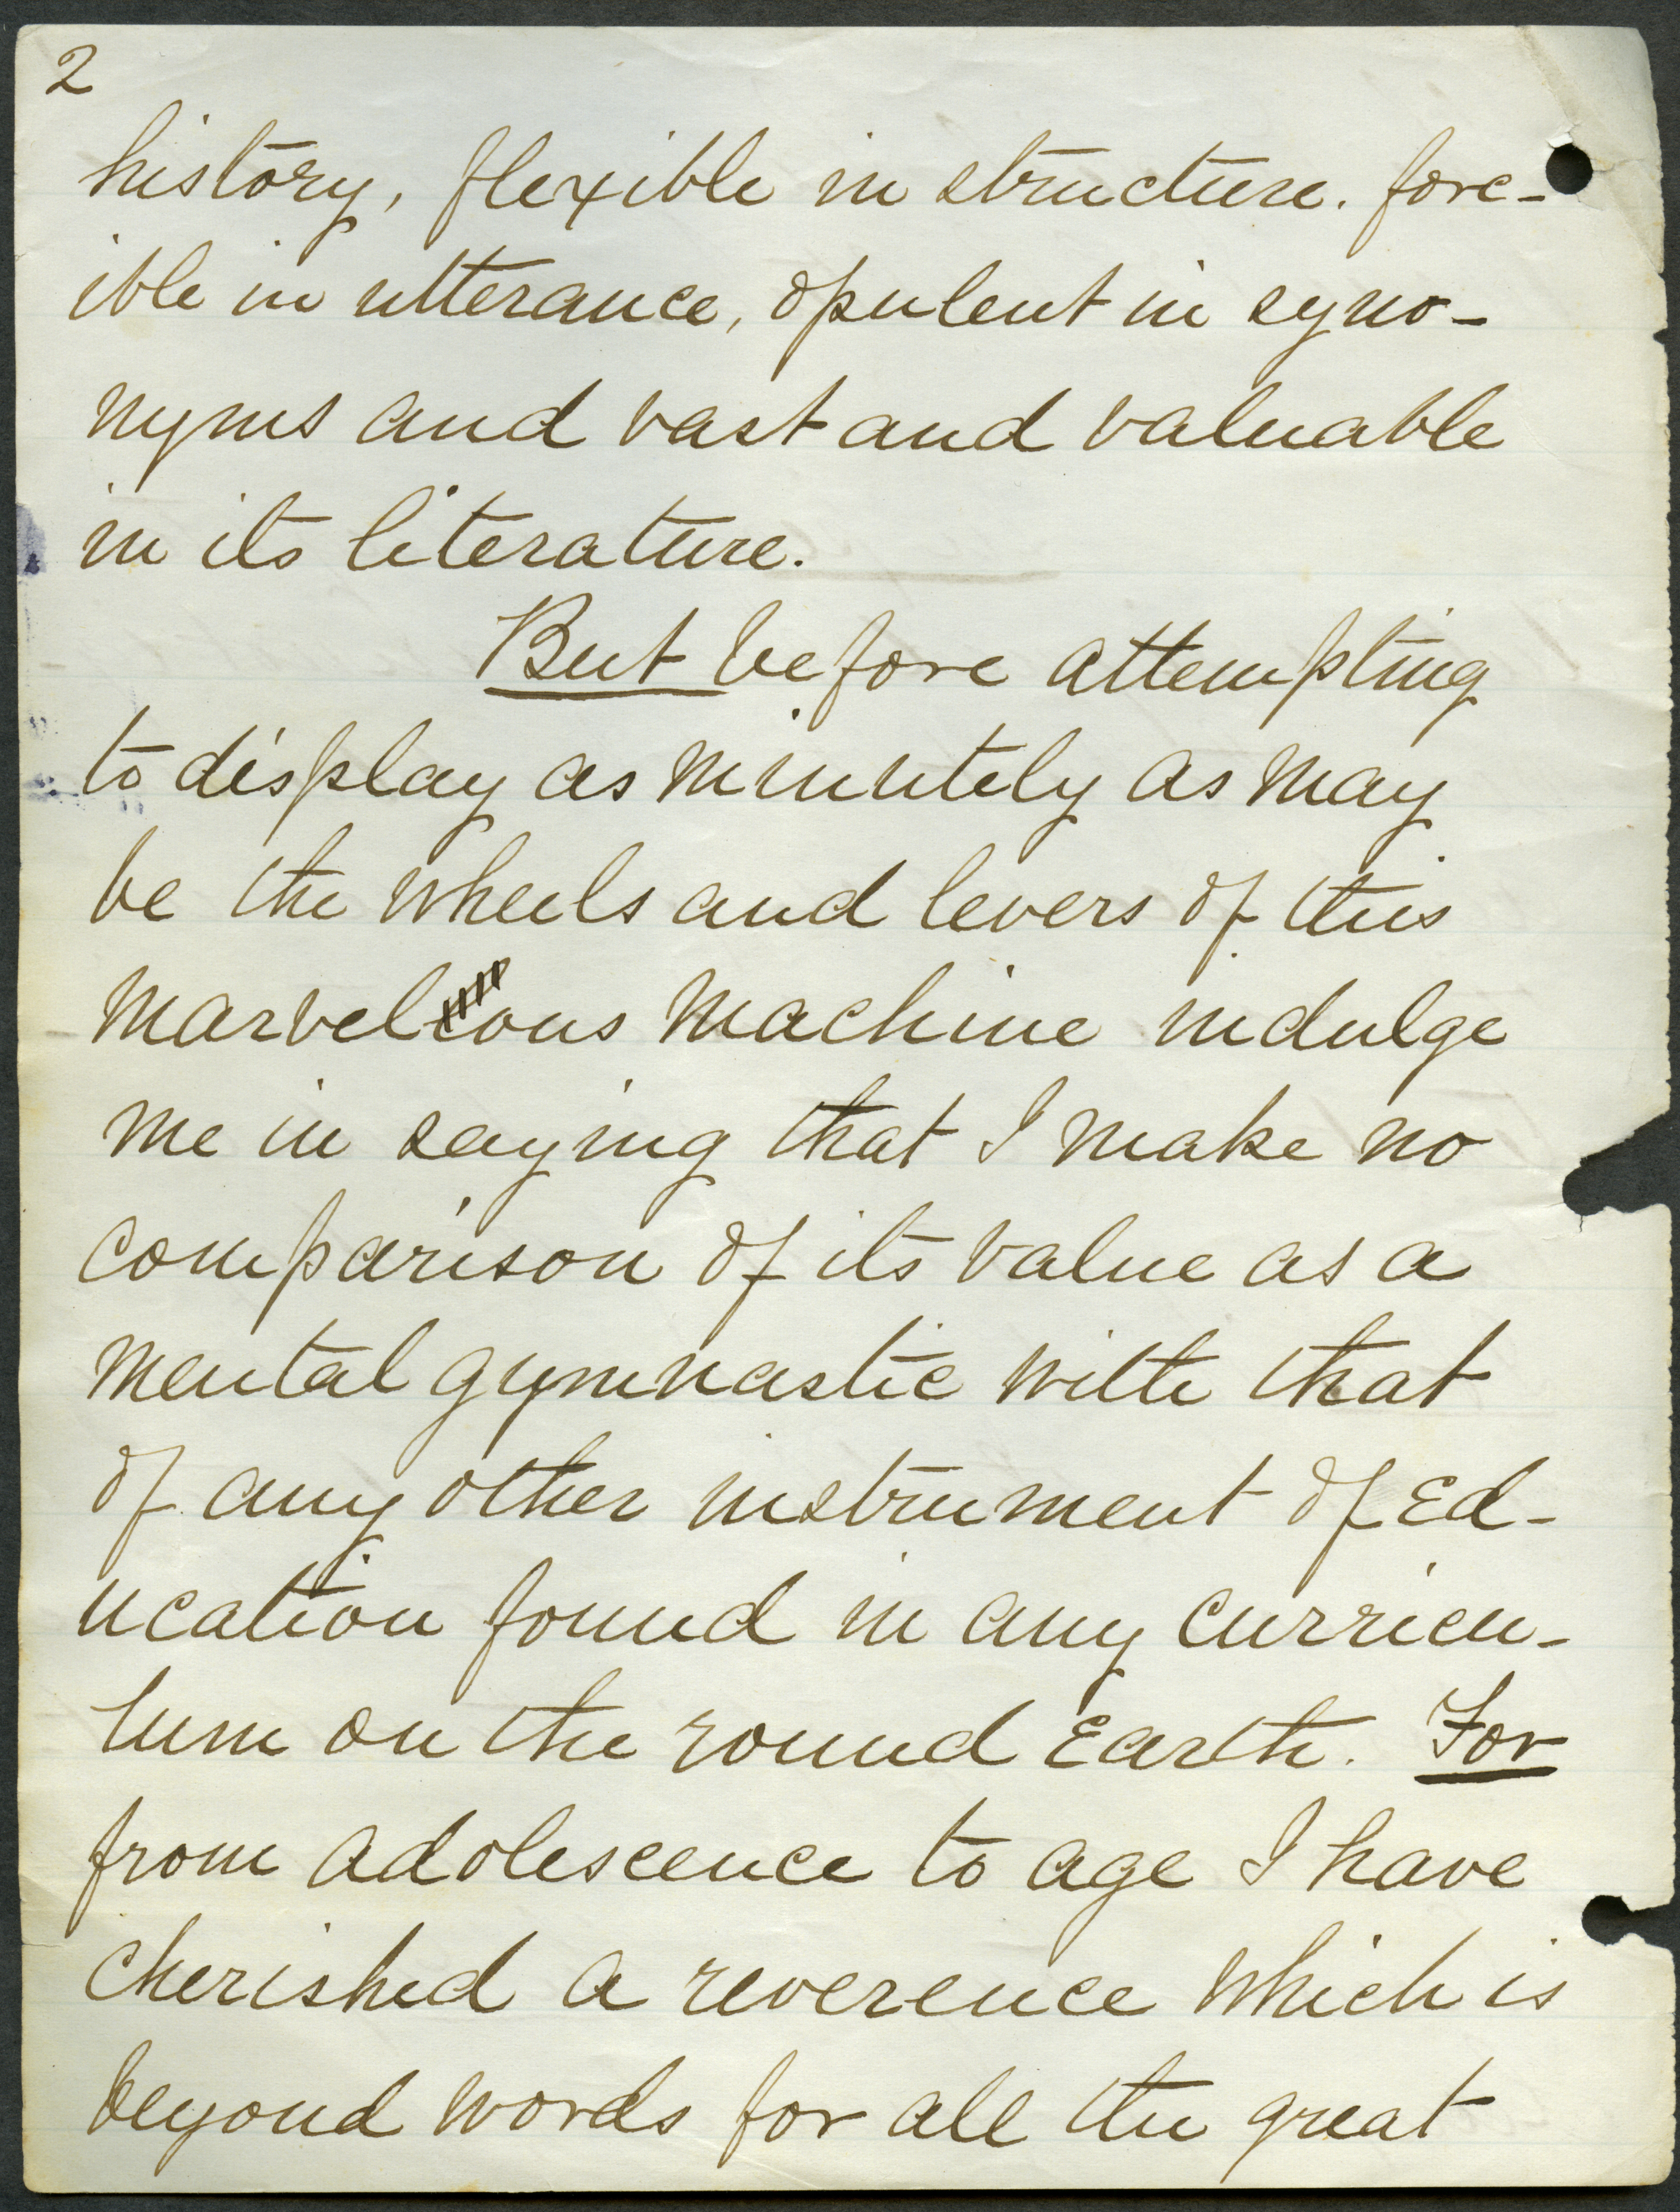 2
history, flexible in structure. forc-
ible in utterance, opulent in syno-
nyms and vast and valuable
in its literature.
But before attempting
to display as minutely as may
be the wheels and levers of this
marvelous machine indulge
me in saying that I make no
comparison of its value as a
mental gymnastic with that
of any other instrument of Ed-
ucation found in any curricu-
lum on the round Earth. For
from adolescence to age I have
cherished a reverence which is
beyond words for all the great